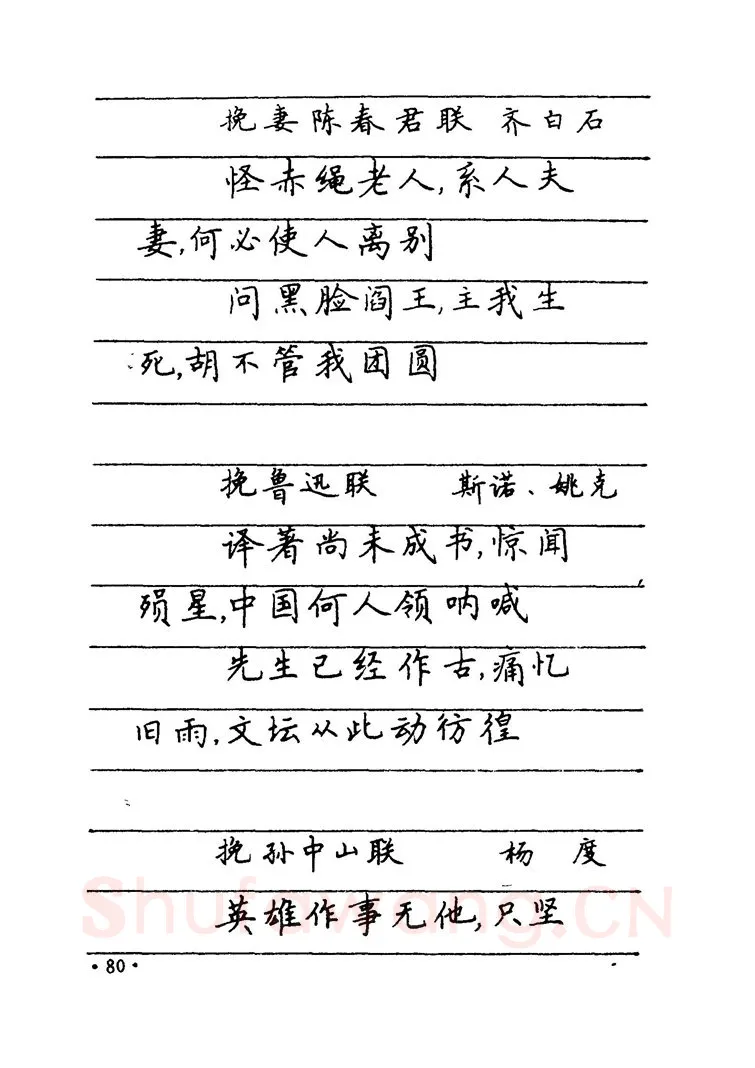 挽妻陈春君联 齐白石
怪赤绳老人,系人夫
妻,何必使人离别
问黑脸阎王,主我生
死,胡不管我团圆
挽鲁迅联 斯诺、姚克
译著尚未成书,惊闻
殒星,中国何人领呐喊
先生已经作古,痛忆
旧雨,文坛从此动彷徨
挽孙中山联 杨度
英雄作事无他,只坚
Shufawang.CN
·80·